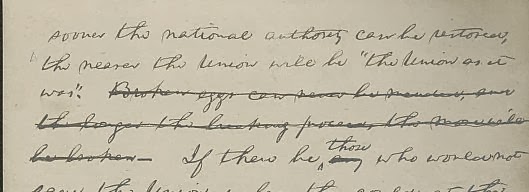 sooner the national authority can be restored,
the nearer the Union will be "the Union as it
was". Broken eggs can never be mended, and
the longer the breaking proceeds, the more will
be broken — If there be those any who would not
save the Union unless they could at the